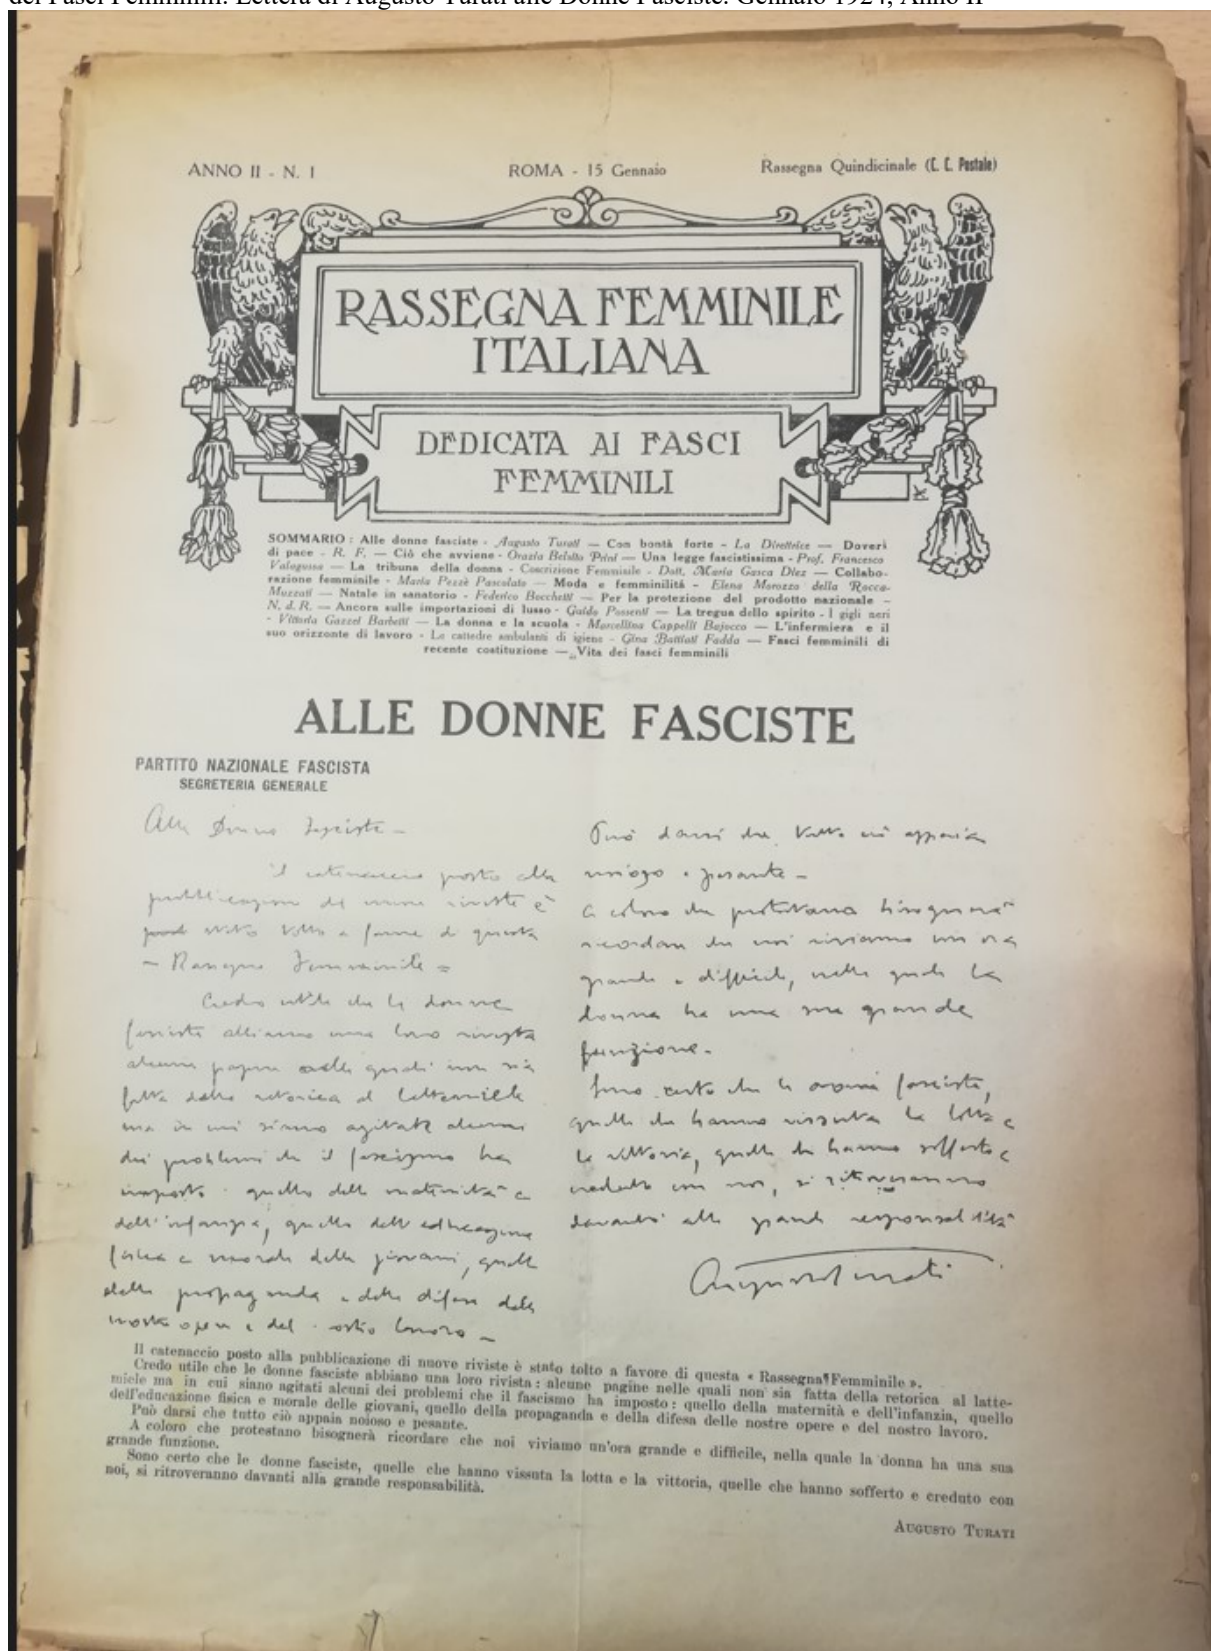 dei Fasci Femminili. Lettera di Augusto Turati alle Donne Fasciste. Gennaio 1924, Anno II
ANNO II - N. 1
ROMA - 15 Gennaio
Rassegna Quindicinale (C. C. Postale)
RASSEGNA FEMMINILE
ITALIANA
DEDICATA AI FASCI
FEMMINILI
SOMMARIO : Alle donne fasciste - Augusto Turati — Con bontà forte - La Direttrice — Doveri
di pace - R. F. — Ciò che avviene - Orazia Belsito Prini — Una legge fascistissima - Prof. Francesco
Valagussa — La tribuna della donna - Coscrizione Femminile - Dott. Maria Gasca Diez — Collabo-
razione femminile - Maria Pezzè Pascolato — Moda e femminilità - Elena Morozzo della Rocca-
Muzzati — Natale in sanatorio - Federico Bocchetti — Per la protezione del prodotto nazionale -
N. d. R. — Ancora sulle importazioni di lusso - Guido Possenti — La tregua dello spirito - I gigli neri
- Vittoria Gazzei Barbetti — La donna e la scuola - Marcellina Cappelli Bajocco — L'infermiera e il
suo orizzonte di lavoro - Le cattedre ambulanti di igiene - Gina Battioti Fadda — Fasci femminili di
recente costituzione — Vita dei fasci femminili
ALLE DONNE FASCISTE
PARTITO NAZIONALE FASCISTA
SEGRETERIA GENERALE
Alle Donne Fasciste -
il catenaccio posto alla
pubblicazione di nuove riviste è
stato tolto a favore di questa
- Rassegna Femminile -
Credo utile che le donne
fasciste abbiano una loro rivista
alcune pagine nelle quali non sia
fatta della retorica al lattemiele
ma in cui siano agitati alcuni
dei problemi che il fascismo ha
imposto: quello della maternità e
dell'infanzia, quello dell'educazione
fisica e morale delle giovani, quello
della propaganda e della difesa delle
nostre opere e del nostro lavoro -
Può darsi che tutto ciò appaia
noioso e pesante -
A coloro che protestano bisognerà
ricordare che noi viviamo un'ora
grande e difficile, nella quale la
donna ha una sua grande
funzione.
Sono certo che le donne fasciste,
quelle che hanno vissuta la lotta e
la vittoria, quelle che hanno sofferto e
creduto con noi, si ritroveranno
davanti alla grande responsabilità
Augusto Turati
Il catenaccio posto alla pubblicazione di nuove riviste è stato tolto a favore di questa « Rassegna Femminile ».
Credo utile che le donne fasciste abbiano una loro rivista : alcune pagine nelle quali non sia fatta della retorica al latte-
miele ma in cui siano agitati alcuni dei problemi che il fascismo ha imposto : quello della maternità e dell'infanzia, quello
dell'educazione fisica e morale delle giovani, quello della propaganda e della difesa delle nostre opere e del nostro lavoro.
Può darsi che tutto ciò appaia noioso e pesante.
A coloro che protestano bisognerà ricordare che noi viviamo un'ora grande e difficile, nella quale la donna ha una sua
grande funzione.
Sono certo che le donne fasciste, quelle che hanno vissuta la lotta e la vittoria, quelle che hanno sofferto e creduto con
noi, si ritroveranno davanti alla grande responsabilità.
AUGUSTO TURATI